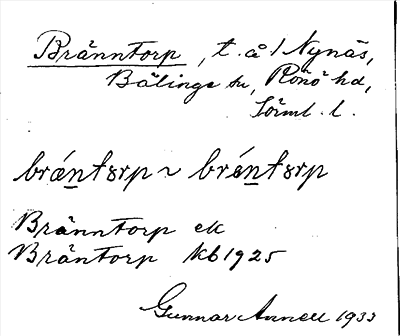 Bränntorp, t. å l Nynäs,
Bälinge sn, Rönö hd,
Sörml. l.
brǽntɷrp ~ bréntɷrp
Bränntorp ek
Bräntorp kb 1925
Gunnar Annell 1933